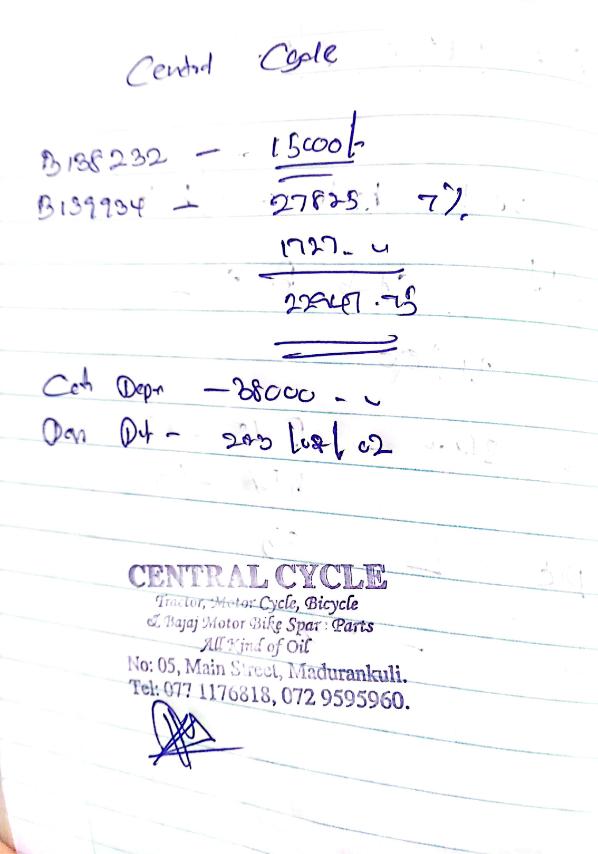 Central Cycle
B138232 - 15000/-
B139934 - 27825. 7%
1727.
Cash Depo - 38000 -
CENTRAL CYCLE
Tractor, Motor Cycle, Bicycle
& Bajaj Motor Bike Spare Parts
All Kind of Oil
No: 05, Main Street, Madurankuli.
Tel: 077 1176818, 072 9595960.